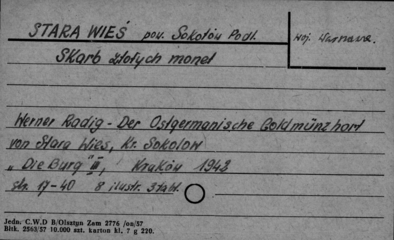 STARA WIEŚ pow. Sokołów Podl.
Woj. Warszawa.
Skarb złotych monet
Werner Radig - Der Ostgermanische Goldmünzhort
von Stara Wies, Kr. Sokolow
„Die Burg" III, Kraków 1943
str. 17-40 8 ilustr. 3 tabl.
Jedn. C.W.D B/Olsztyn Zam 2776 /oa/57
Bltk. 2563/57 10.000 szt. karton kl. 7 g 220.